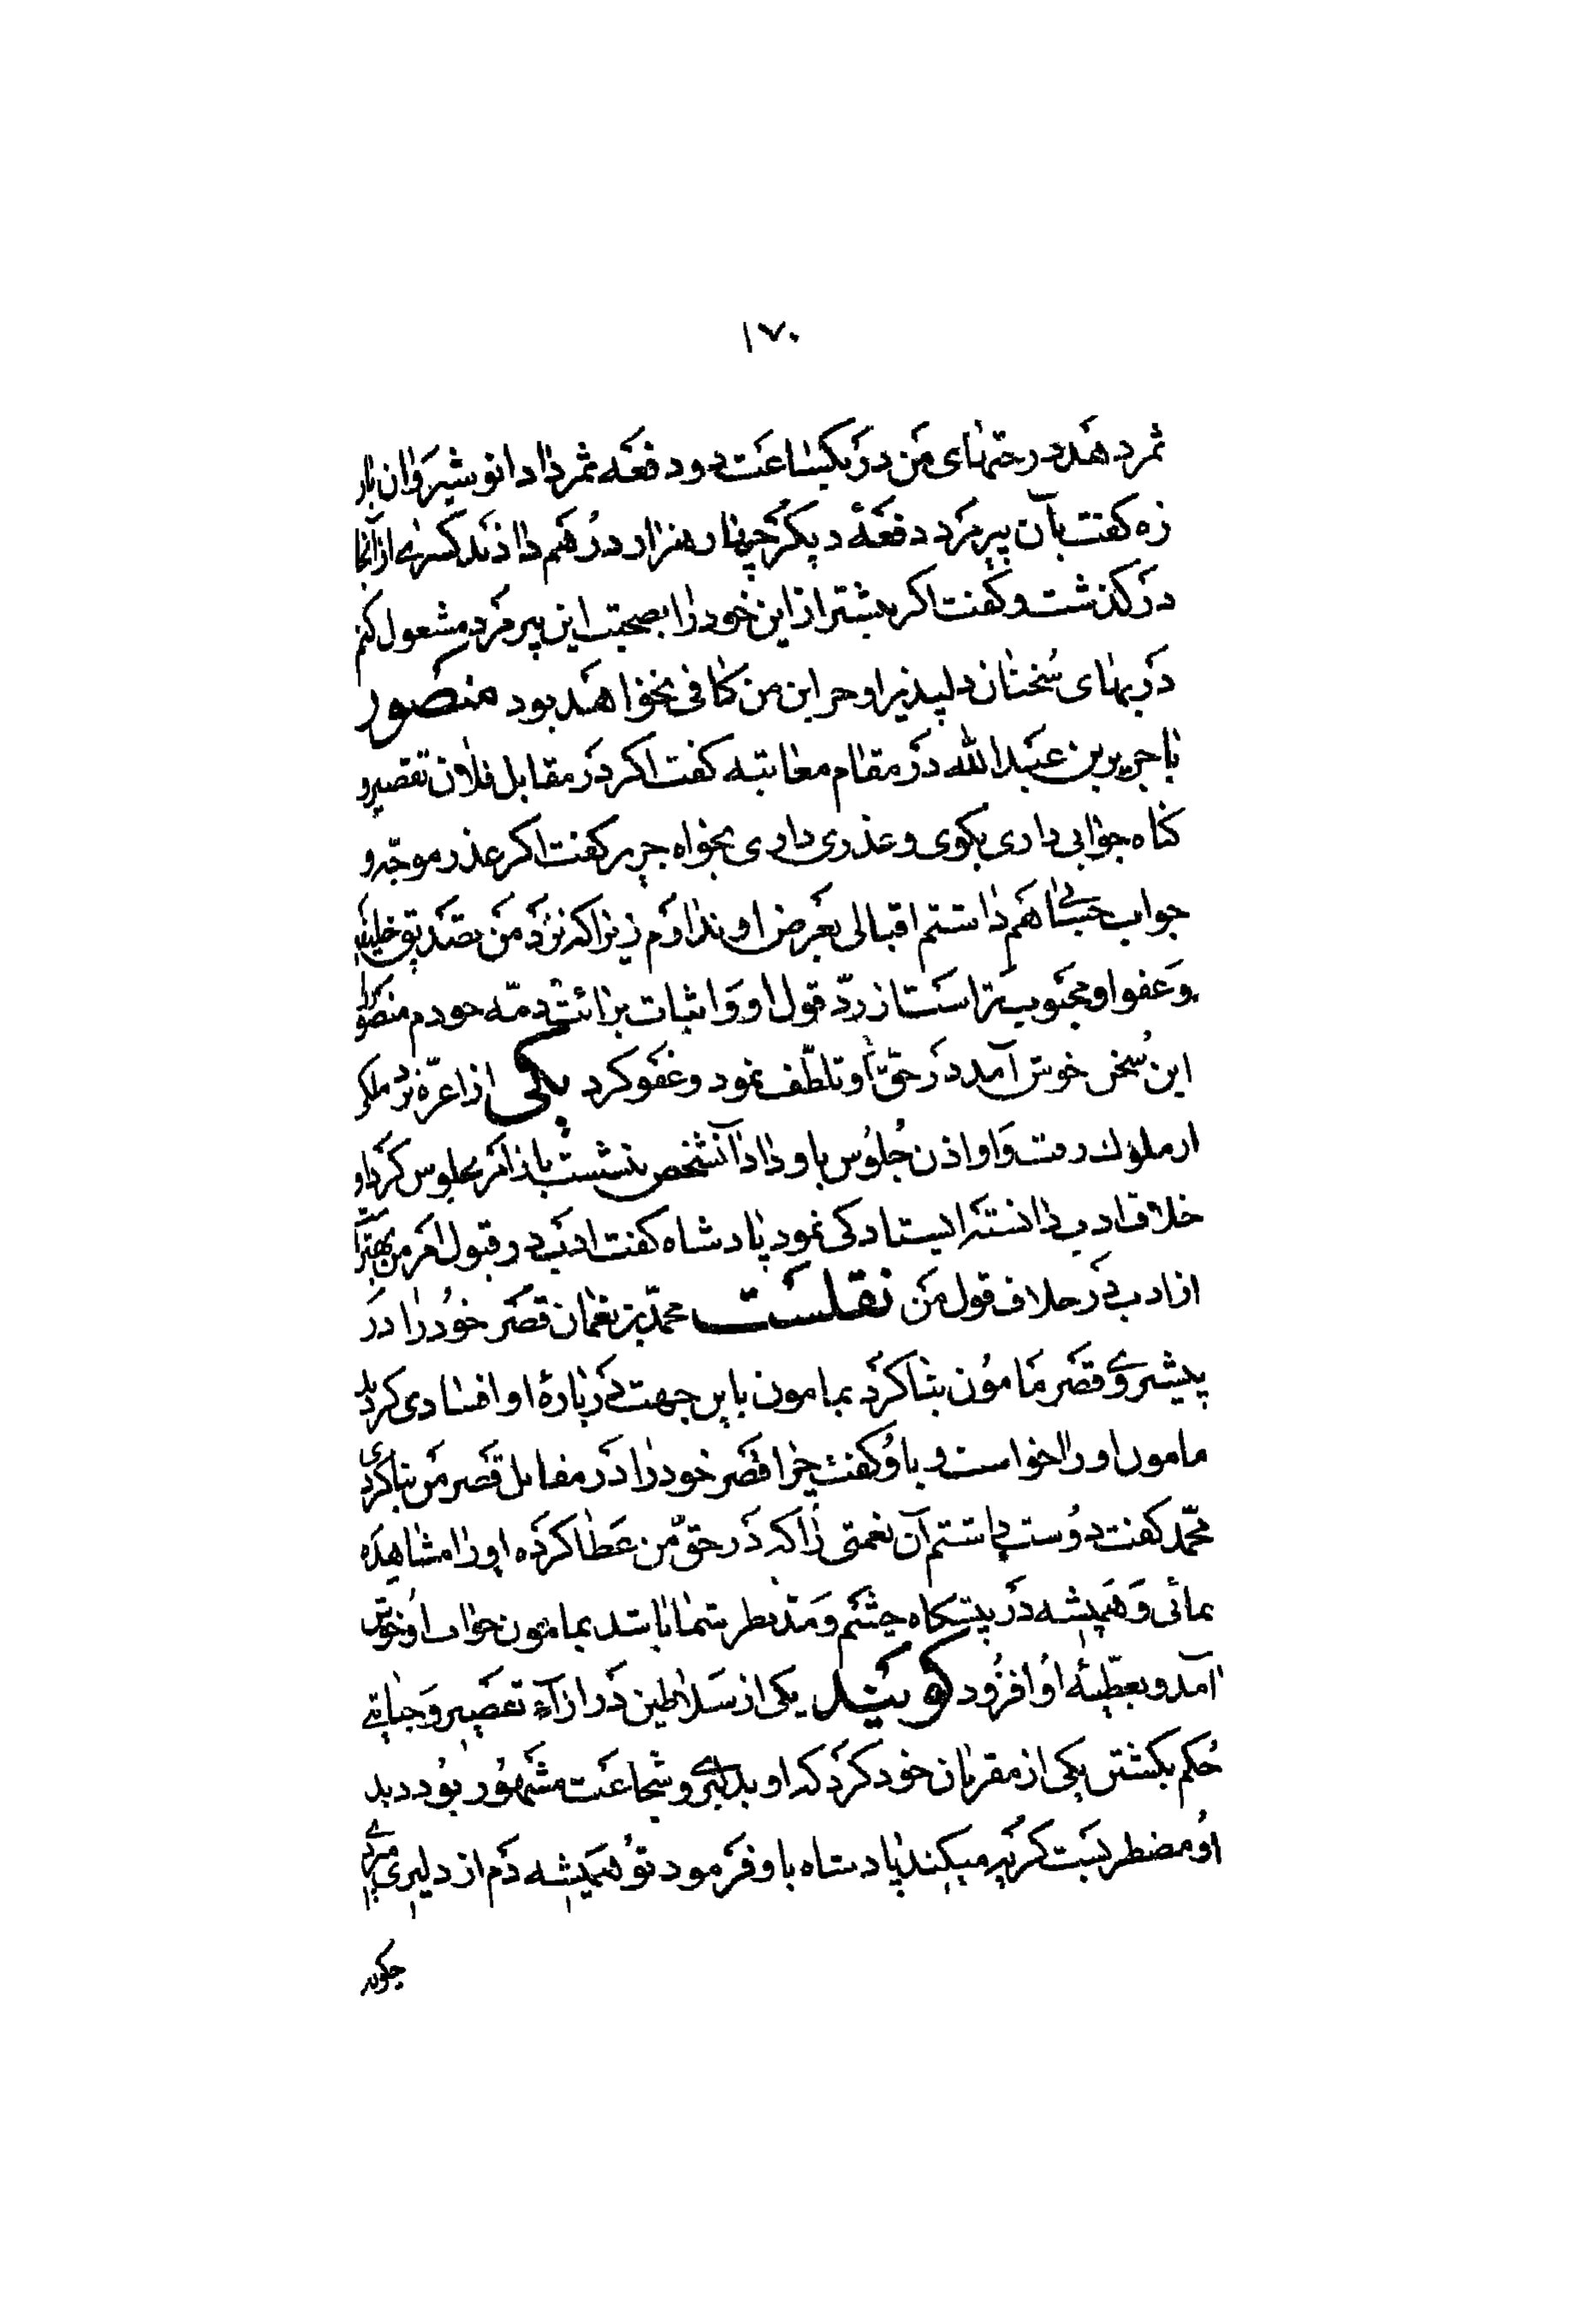 ۱۷۰
ثمر دهد درختهای من در یکساعت دو دفعه ثمر داد انوشیروان باز
زه کفت بآن پیرمرد دفعهٔ دیکر چهار هزار درهم دادند کسری از آنجا
در کذشت و کفت اکر بیشتر از این خود را بصحبت این پیرمرد مشعول کنم
در بهای سخنان دلپذیر او خزاین من کافی نخواهد بود منصور
با جریر بن عبدالله در مقام معاتبه کفت اکر در مقابل فلان تقصیر و
کناه جوابی داری بکوی و عذری داری بخواه جریر کفت اکر عذر موجّه و
جواب حسابی هم داشتم اقبالی بعرض او ندارم زیرا که نزد من تصدیق خلیفه
و عفو او محبوب تر است از ردّ قول او و اثبات برائت ذمّه خودم منصور را
این سخن خوش آمد در حقّ او تلطّف نمود و عفو کرد یکی از اعزّه نزد ملکی
از ملوک رفت و او اذن جلوس باو داد آنشخص ننشست باز امر بجلوس کرد او
خلاف ادب دانسته ایستادکی نمود پادشاه کفت ادب در قبول امر من بهتر است
از ادب در خلاف قول من نقلست محمّد بن نعمان قصر خود را در
پیشروی قصر مامون بنا کرد بمامون باین جهت در بارهٔ او افسادی کردند
مامون او را خواست و باو کفت چرا قصر خود را در مقابل قصر من بنا کردی
محمّد کفت دوست داشتم آن نعمتی را که در حقّ من عطا کرده او را مشاهده
نمائی و همیشه در پیشکاه چشم و مدّ نظر شما باشد بمامون جواب او خوش
آمد و بعطیّهٔ او افزود کویند یکی از سلاطین در ازآء تقصیر و جنایتی
حکم بکشتن یکی از مقربان خود کرد که او بدلیری و شجاعت مشهور بود دید
او مضطربست کریه میکند پادشاه باو فرمود تو همیشه دم از دلیری میزدی
چکونه